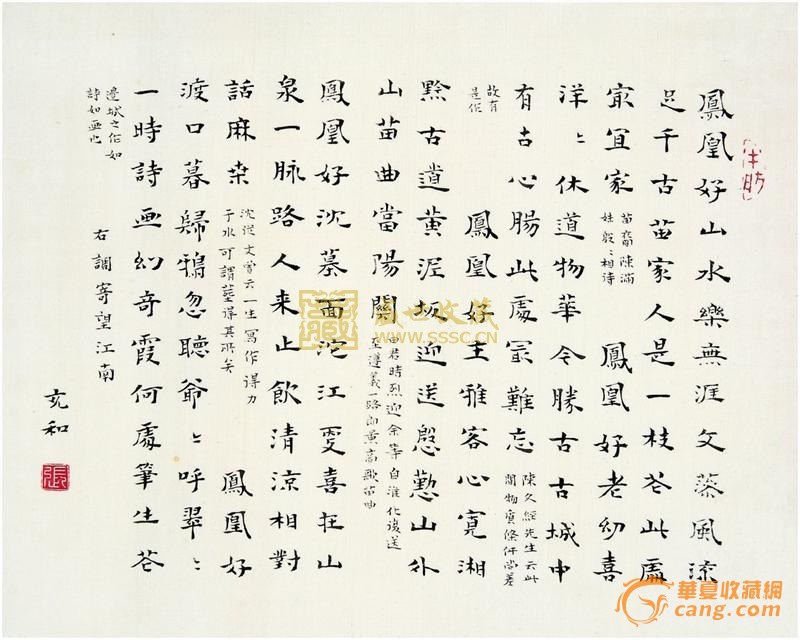 鳳凰好山水樂無涯文藻風流
足千古苗家人是一枝花此處
最宜家
苗裔陳滿
妹殷〻相待
鳳凰好老幼喜
洋〻休道物華令勝古古城中
有古心腸此處最難忘
陳久經先生云此
間物質條件尚差
故有
是作
鳳凰好主雅客心寬湘
黔古道黃泥坂迎送慇懃山外
山苗曲當陽關
君時烈迎余等自淮化後送
至遵義一路向黃高歌苗曲
鳳凰好沈墓面沱江更喜在山
泉一脉路人来止飲清涼相對
話麻桑
沈從文曾云一生寫作得力
于水可謂墓得其所矣
鳳凰好
渡口暮歸鴉忽聽爺〻呼翠〻
一時詩画幻奇霞何處筆生花
邊城之作如
詩如画也
右調寄望江南
充和
張
盛世收藏
WWW.SSSC.CN
華夏收藏網
cang.com